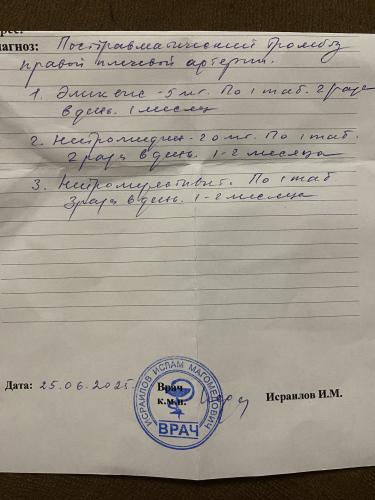 рес:
иагноз: Посттравматический тромбоз
правой плечевой артерии.
1. Эликвис - 5 мг. По 1 таб. 2 раза
в день. 1 месяц
2. - 20 мг. По 1 таб.
2 раза в день. 1-2 месяца
3. Нейромультивит. По 1 таб
3 раза в день. 1-2 месяца
Дата: 25.06.2025
Врач
к.м.н.
Исраилов И.М.
ИСРАИЛОВ ИСЛАМ МАГОМЕДОВИЧ
ВРАЧ